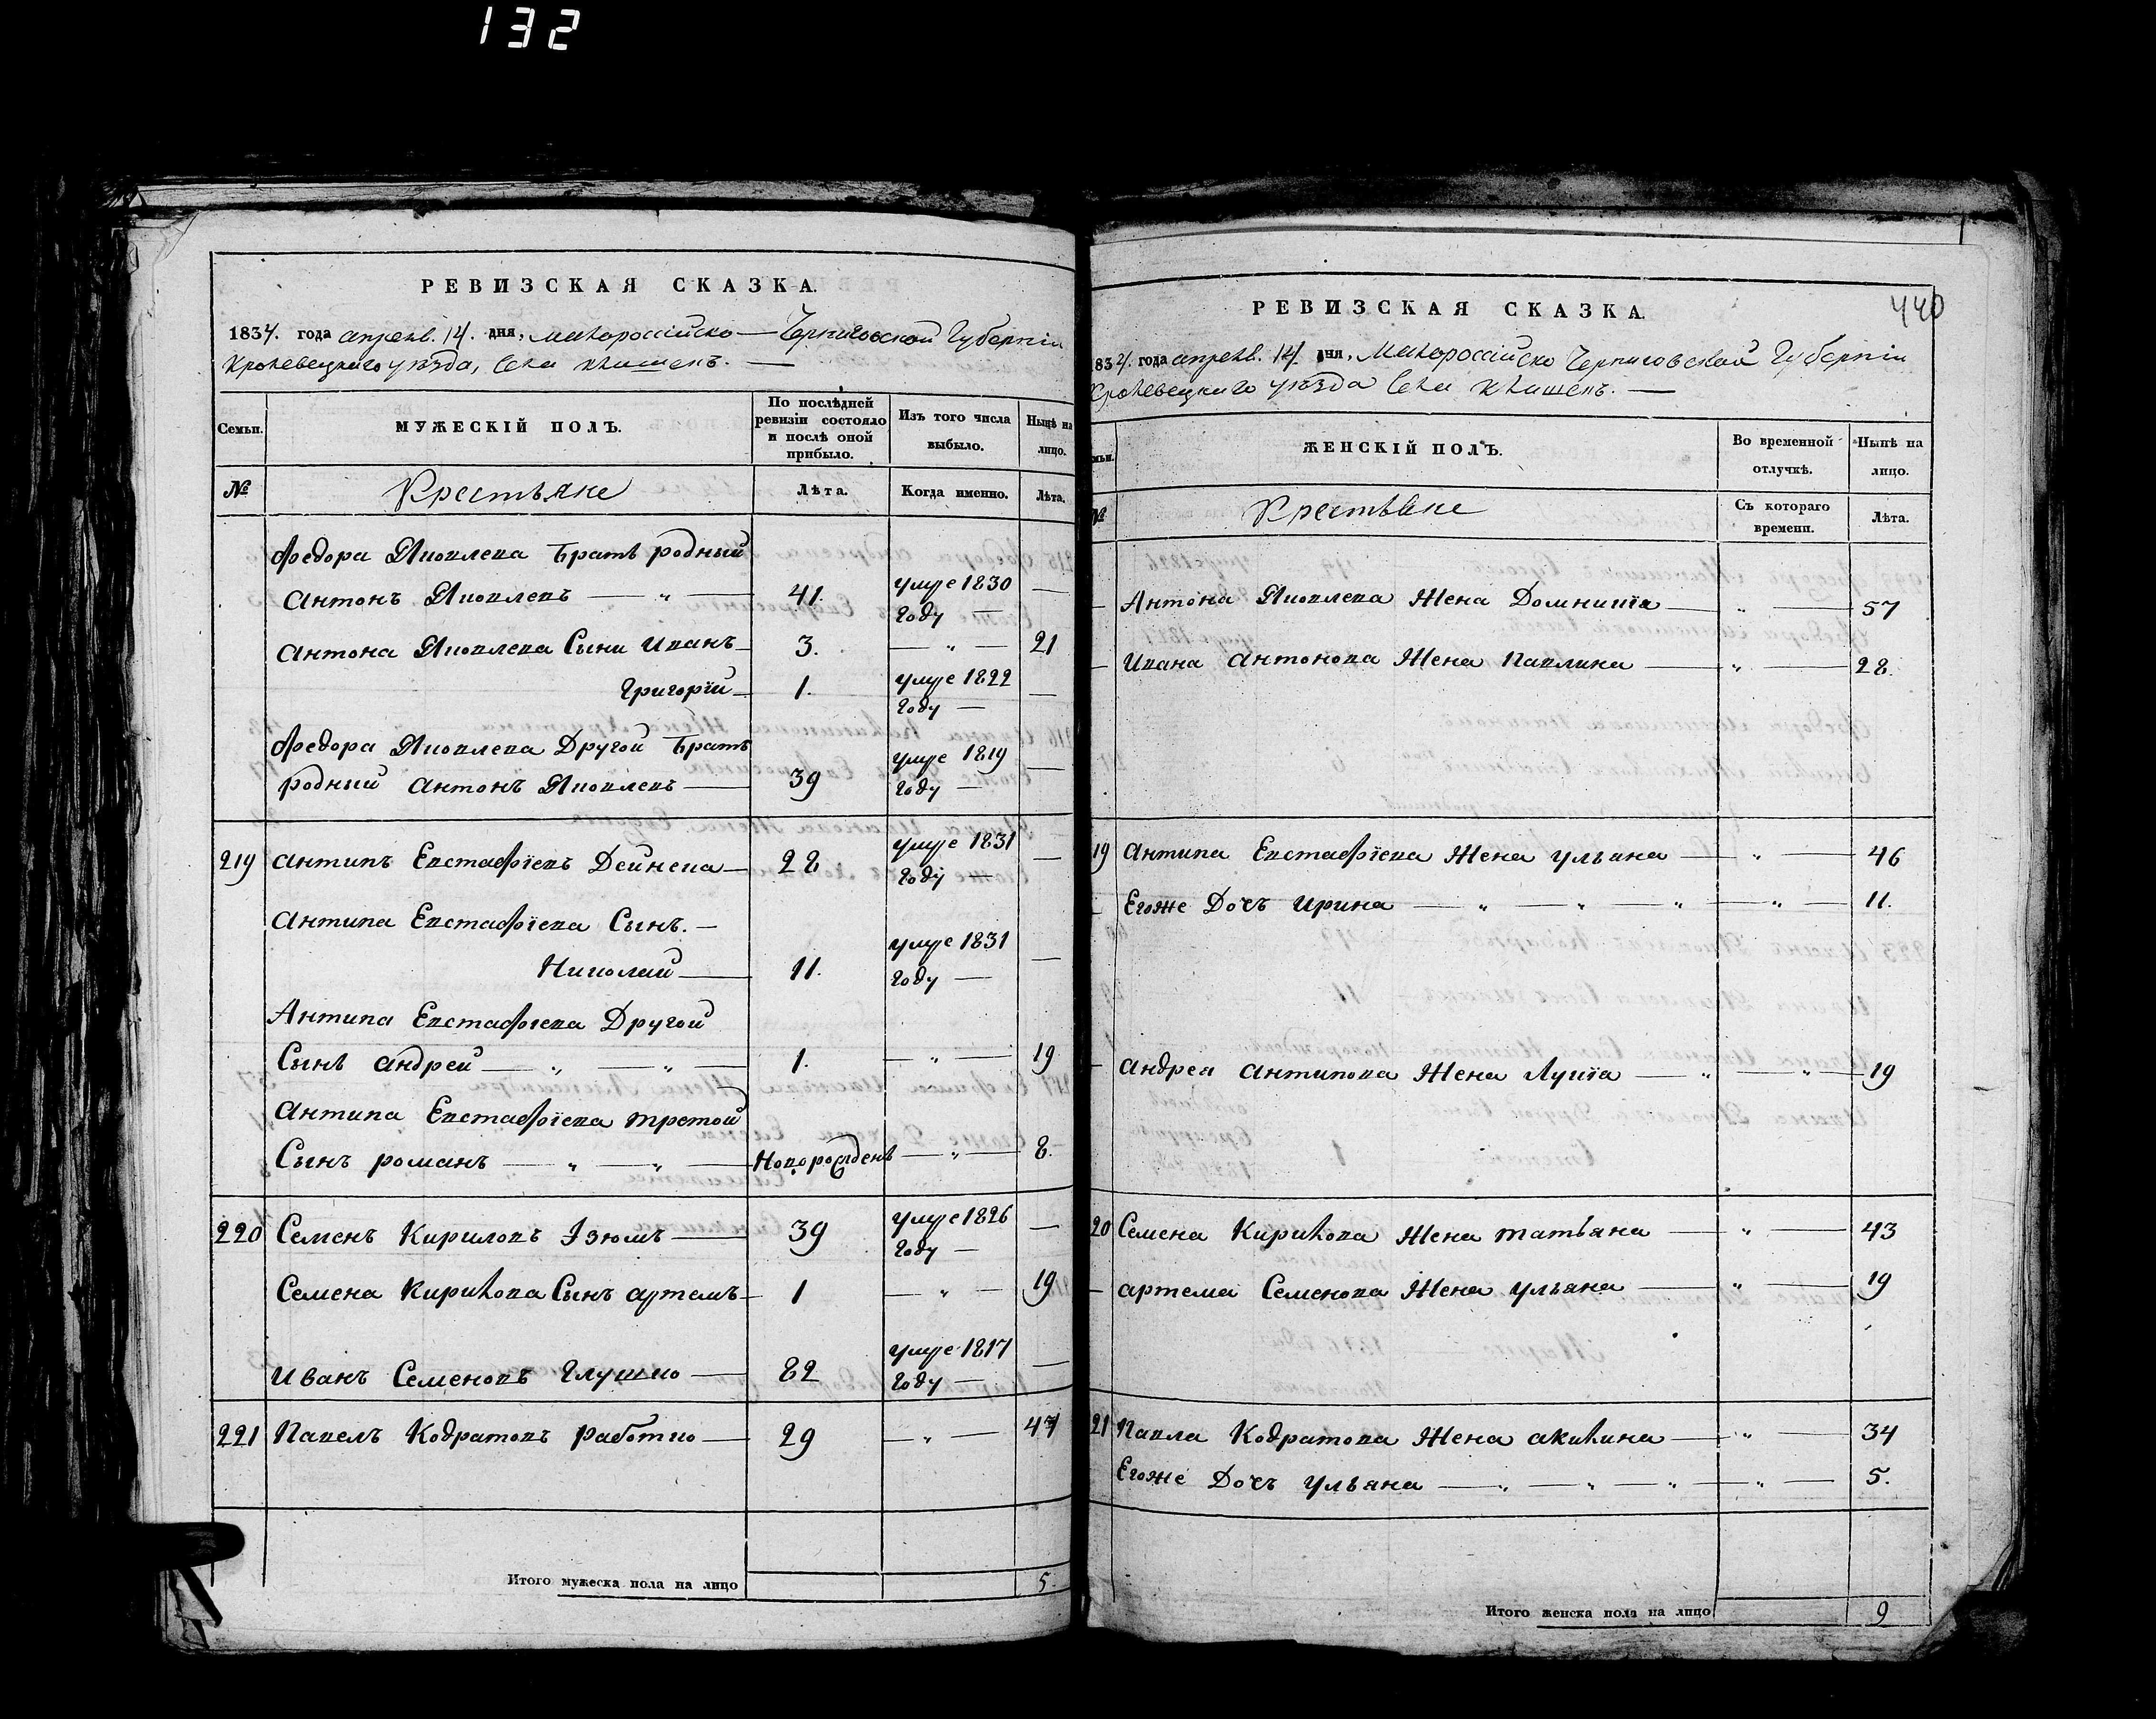 132
РЕВИЗСКАЯ СКАЗКА.
1834. года апреля. 14. дня, Малороссійско — Черниговской Губерніи
Кролевецкаго уѣзда, Села Клишекъ. —
Семьи.
МУЖЕСКІЙ ПОЛЪ.
По послѣдней ревизіи состояло и послѣ оной прибыло.
Изъ того числа выбыло.
Нынѣ на лицо.
№
Крестьяне
Лѣта.
Когда именно.
Лѣта.
Федора Яковлева Братъ родный
Антонъ Яковлевъ — „ — 41. умре 1830 году — —
Антона Яковлева Сыни Иванъ — 3. — „ — 21
Григорій — 1. умре 1822 году — —
Федора Яковлева Другой Братъ
родный Антонъ Яковлевъ — 39 умре 1819 году — —
219 Антипъ Евстафіевъ Дейнека — 28 умре 1831 году — —
Антипа Евстафіева Сынъ. —
Николай — 11. умре 1831 году — —
Антипа Евстафіева Другой
Сынъ Андрей — „ — „ — 1. — „ — 19
Антипа Евстафіева третой
Сынъ романъ — „ — „ — Новорожденъ — „ — 8.
220 Семенъ Кириловъ Ізюмъ — 39 умре 1826 году — —
Семена Кирилова Сынъ артемъ — 1 — „ — 19
Иванъ Семеновъ Глушко — 82 умре 1817 году — —
221 Павелъ Кодратовъ Работко — 29 — „ — 47
Итого мужеска пола на лицо 5.
440
РЕВИЗСКАЯ СКАЗКА.
1834. года апреля. 14. дня, Малороссійско Черниговской Губерніи
Кролевецкаго уѣзда Села Клишекъ. —
ЖЕНСКІЙ ПОЛЪ.
Во временной отлучкѣ.
Нынѣ на лицо.
№
Крестьяне
Съ котораго времени.
Лѣта.
— Антона Яковлева Жена Домникія — „ — 57
— Ивана Антонова Жена Павлина — „ — 28.
19 Антипа Евстафіева Жена ульяна — „ — 46
— Егоже Дочъ Ирина — „ — „ — „ — „ — 11.
— Андрея Антипова Жена Лукія — „ — „ — 19
20 Семена Кирилова Жена татьяна — „ — 43
— артема Семенова Жена ульяна — „ — 19
21 Павла Кодратова Жена акилина — „ — 34
Егоже Дочъ ульяна — „ — „ — „ — „ — 5.
Итого женска пола на лицо 9